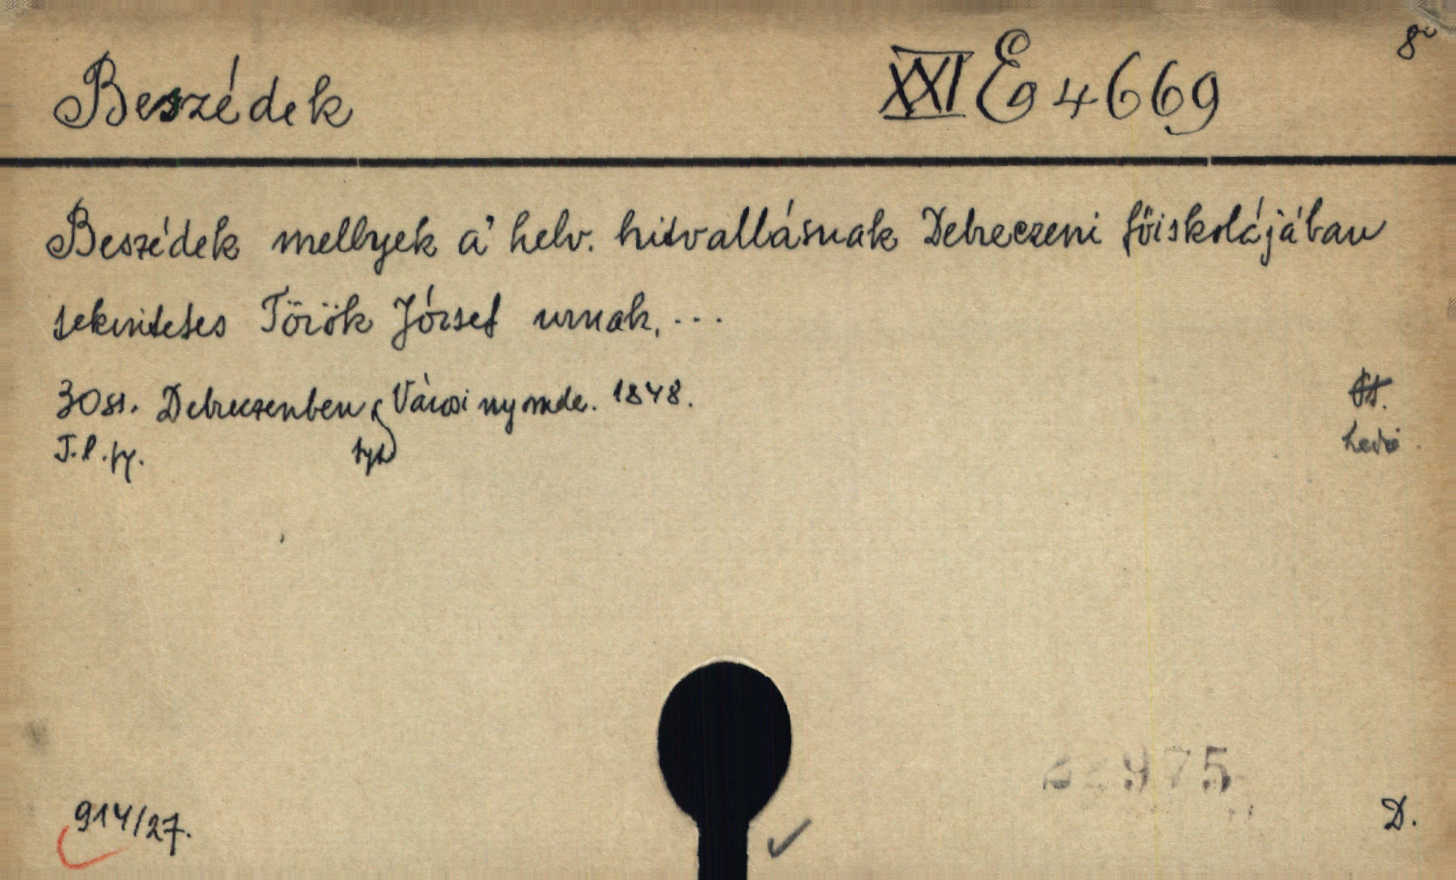 Beszédek XXI E 4669 8°
Beszédek mellyek a' helv. hitvallásnak Debreczeni főiskolájában
tekintetes Török József urnak, ...
30 sz. Debreczenben, Városi nyomda. 1848.
T. l. fy. typ
Ledó
975
914/27. D.